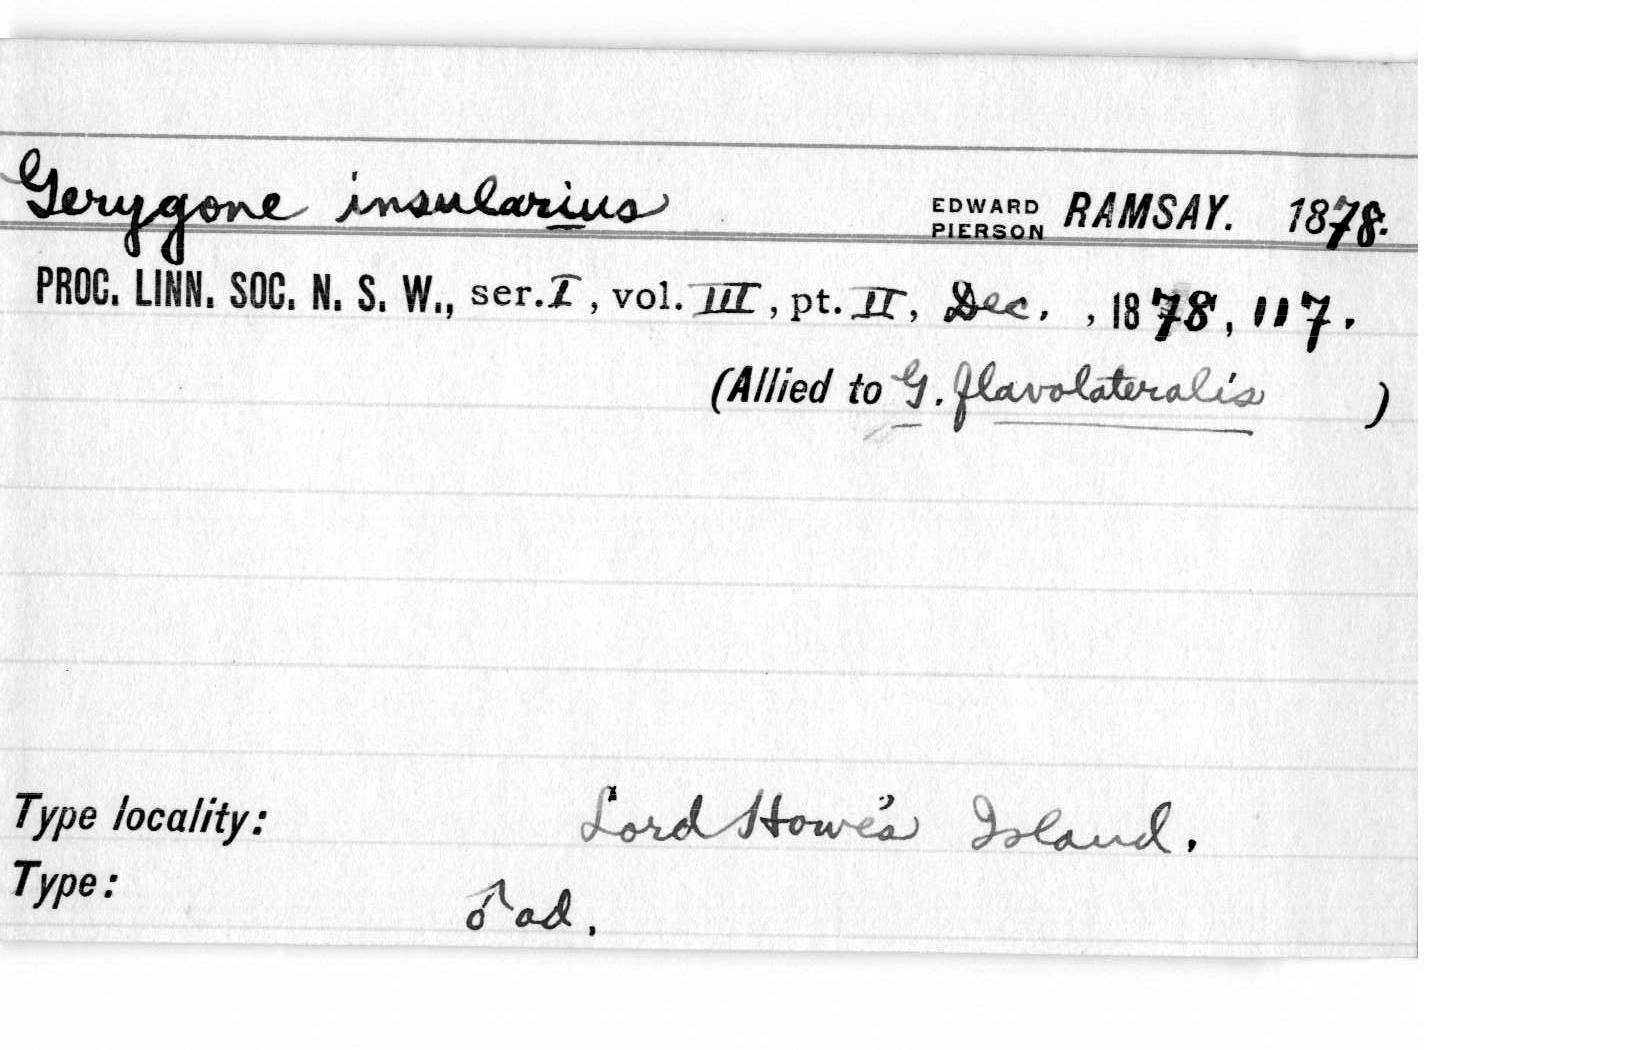 Gerygone insularius EDWARD PIERSON RAMSAY. 1878.
PROC. LINN. SOC. N. S. W., ser. I, vol. III, pt. II, Dec. , 1878, 117.
(Allied to G. flavolateralis )
Type locality: Lord Howe's Island.
Type: ♂ ad.